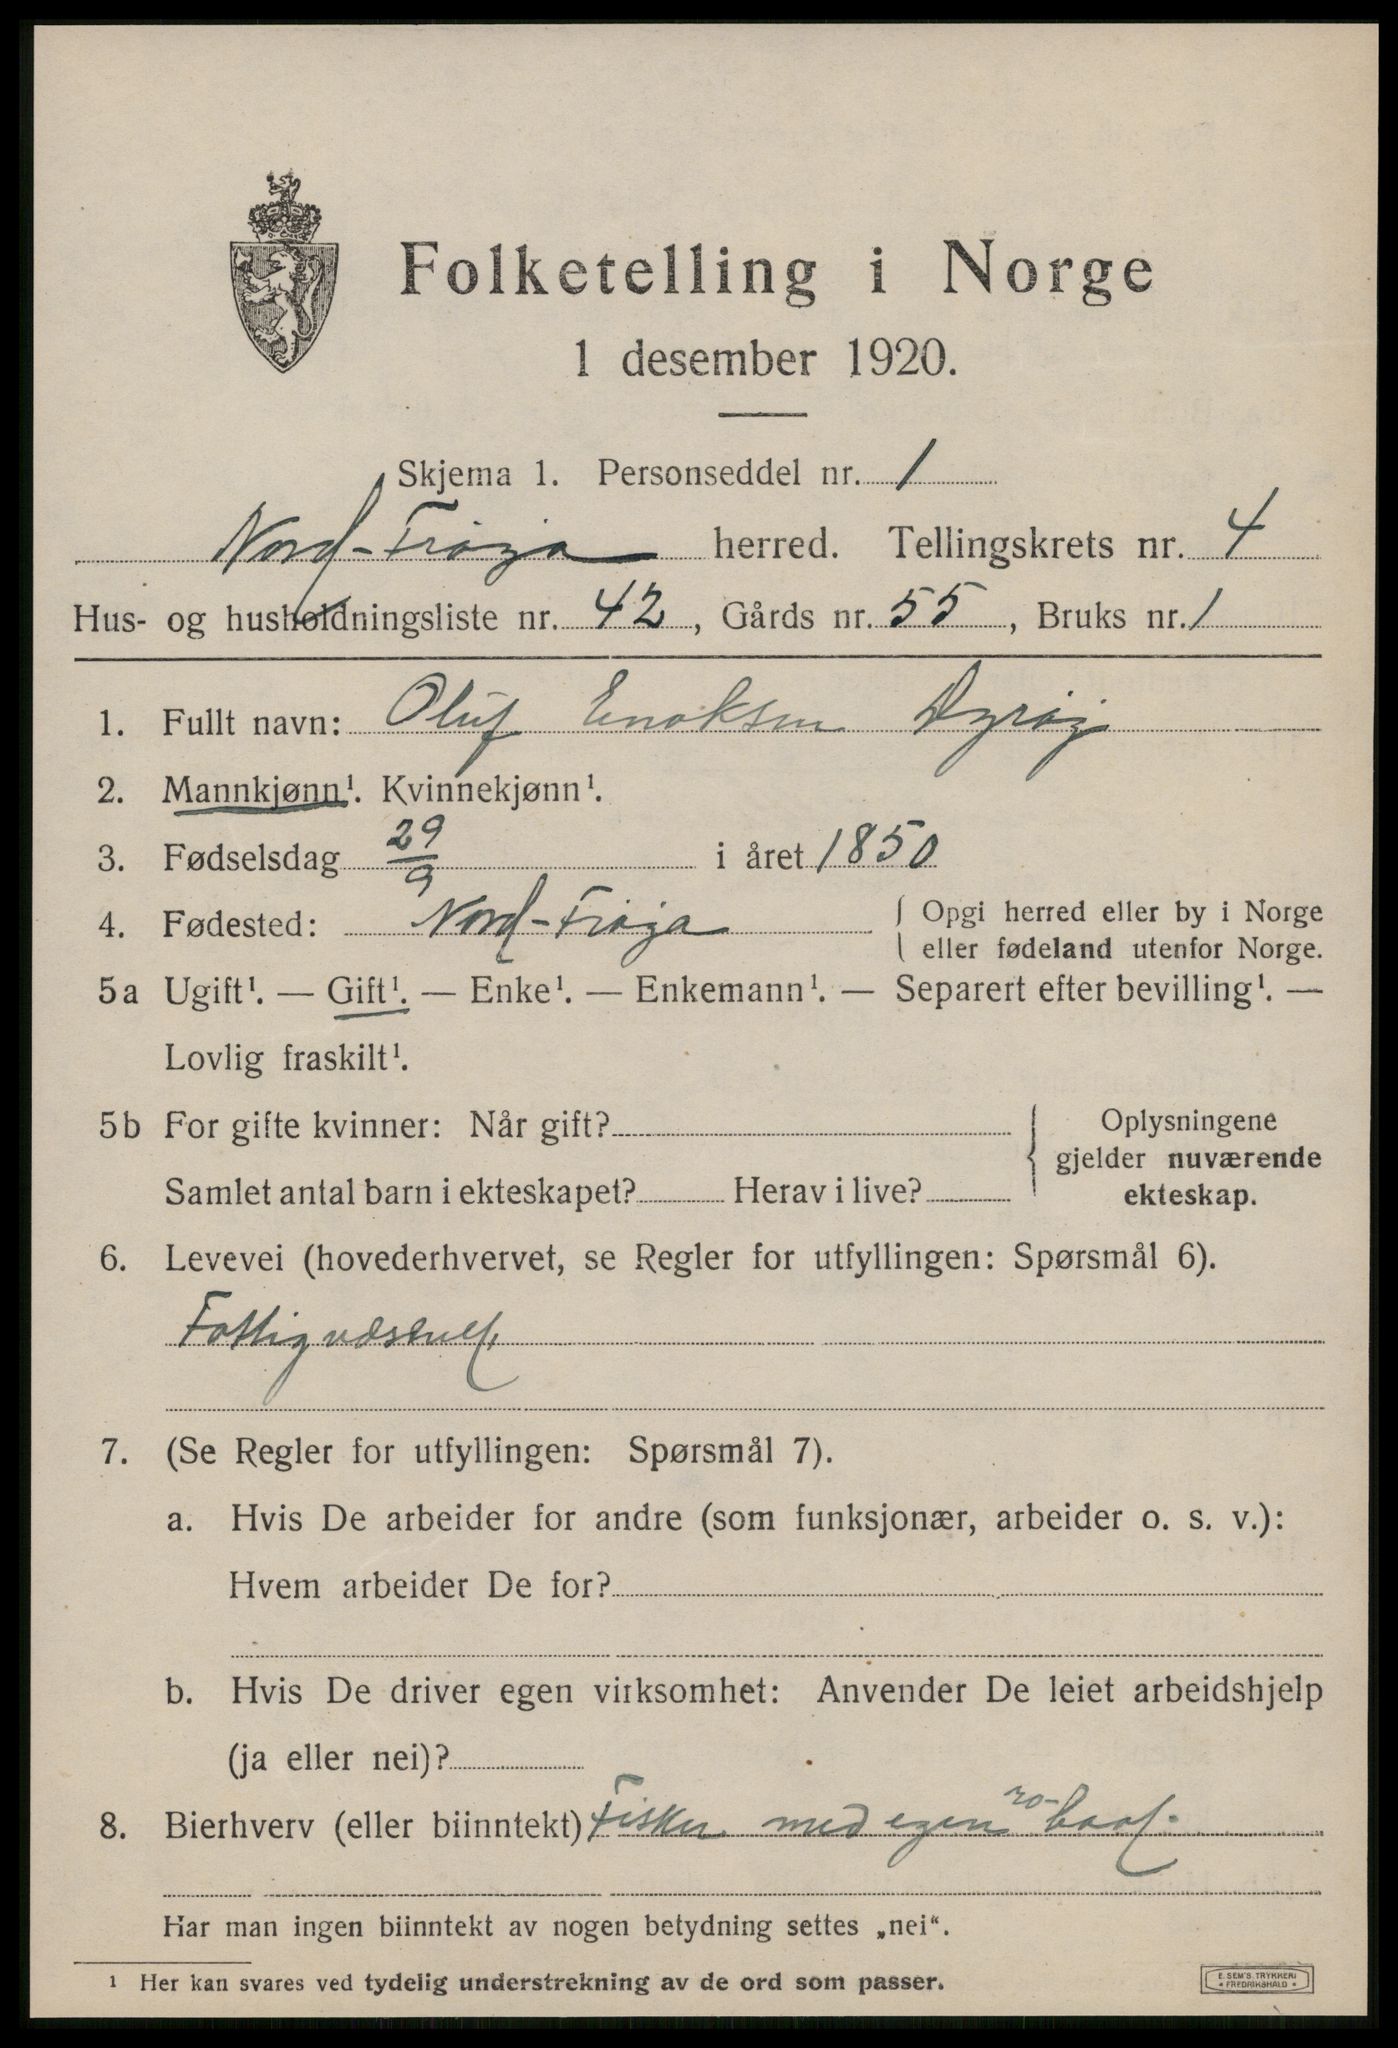 Folketelling i Norge
1 desember 1920.
Skjema 1. Personseddel nr. 1
Nord-Frøya herred. Tellingskrets nr. 4
Hus- og husholdningsliste nr. 42, Gårds nr. 55, Bruks nr. 1
1. Fullt navn: Oluf Enoksen Dyrøy
2. Mannkjønn¹. Kvinnekjønn¹.
3. Fødselsdag 29/9 i året 1850
4. Fødested: Nord-Frøya { Opgi herred eller by i Norge
eller fødeland utenfor Norge.
5a Ugift¹. — Gift¹. — Enke¹. — Enkemann¹. — Separert efter bevilling¹. —
Lovlig fraskilt¹.
5b For gifte kvinner: Når gift?
Samlet antal barn i ekteskapet? Herav i live?
{ Oplysningene
gjelder nuværende
ekteskap.
6. Levevei (hovederhvervet, se Regler for utfyllingen: Spørsmål 6).
7. (Se Regler for utfyllingen: Spørsmål 7).
a. Hvis De arbeider for andre (som funksjonær, arbeider o. s. v.):
Hvem arbeider De for?
b. Hvis De driver egen virksomhet: Anvender De leiet arbeidshjelp
(ja eller nei)?
8. Bierhverv (eller biinntekt) Fisker med egen ro-baat.
Har man ingen biinntekt av nogen betydning settes „nei“.
¹ Her kan svares ved tydelig understrekning av de ord som passer.
E. SEM'S TRYKKERI
• FREDRIKSHALD •